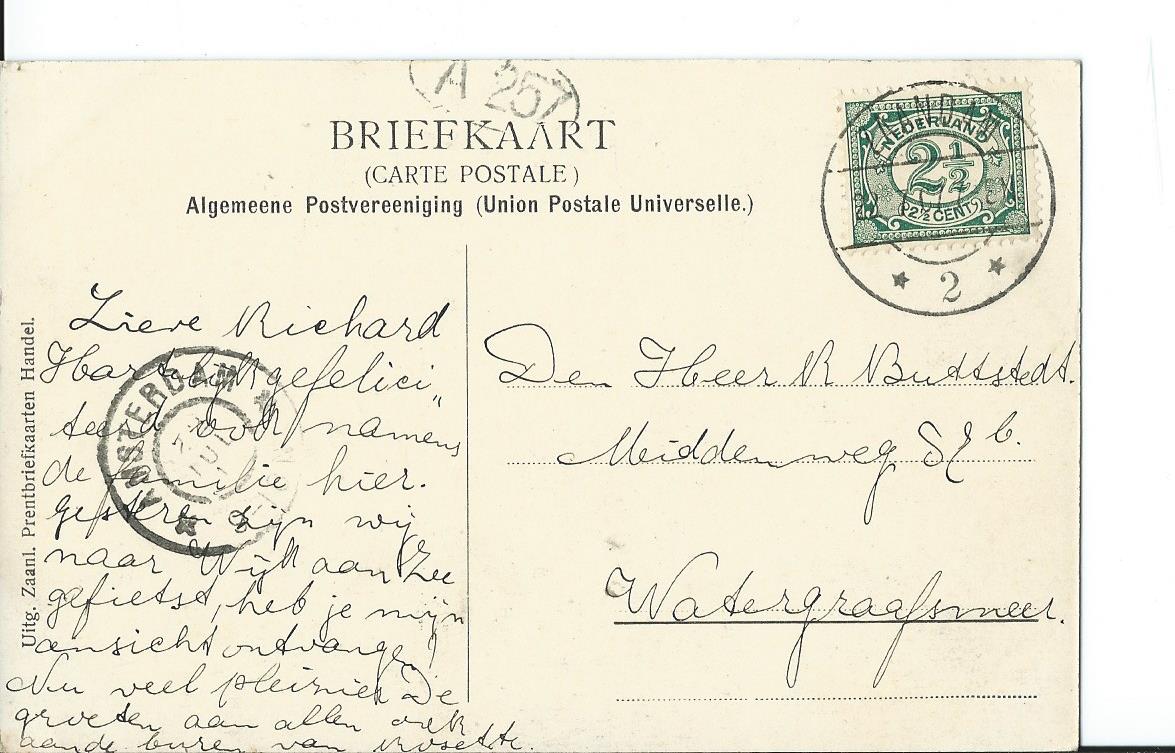 A 257
BRIEFKAART
(CARTE POSTALE)
Algemeene Postvereeniging (Union Postale Universelle.)
NEDERLAND
2½
2½ CENT
2
Uitg. Zaanl. Prentbriefkaarten Handel.
AMSTERDAM
Lieve Richard
Hartelijk gefelici„
teerd ook namens
de familie hier.
Gisteren zijn wij
naar Wijk aan Zee
gefietst, heb je mijn
ansicht ontvangen
Nu veel pleizier De
groeten aan allen ook
aan de buren van
Den Heer R Buttstedt.
Middenweg
Watergraafsmeer.